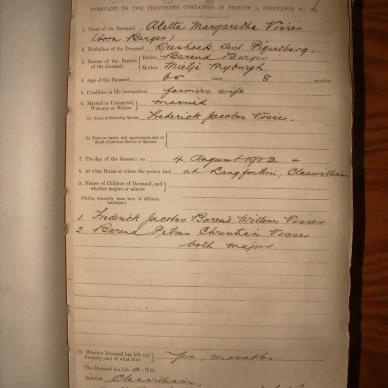 PURSUANT TO THE PROVISIONS CONTAINED IN SECTION
1. Name of the Deceased Aletta Margaretha Visser
(born Burger)
2. Birthplace of the Deceased Dist. Piquetberg
3. Names of the Parents of the deceased. Father Barend Burger
Mother Myburgh
4. Age of the Deceased years 8 months
5. Condition in life (occupation) farmers wife
6. Married or Unmarried, Widower or Widow married
(a) Name of Surviving Spouse Frederick Jacobus Visser
(b) Name or names and approximate date of death of previous Spouse or Spouses
7. The day of the decease: on 4 August 1902
8. At what House or where the person died at Langfontein, Clanwilliam
9. Names of Children of Deceased, and whether majors or minors
1. Frederick Jacobus Barend Willem Visser
2 Barend Petrus Christian Visser
both majors
10. Whether Deceased has left any Property, and of what kind yes, movable
The Deceased has left Will
Dated at Clanwilliam